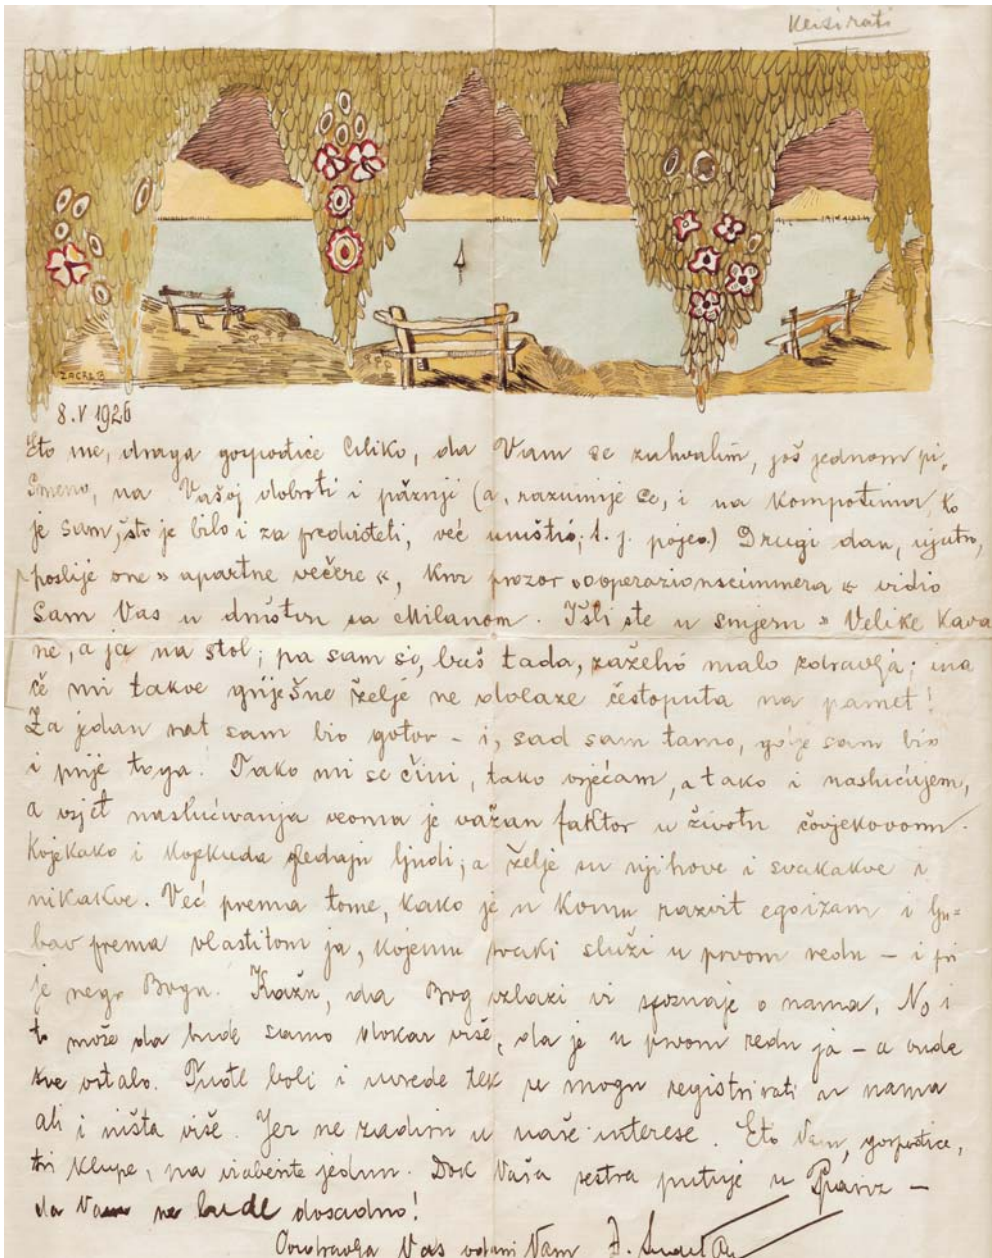 Klisirati
ZAGREB
8. V 1926
Eto me, draga gospođice Ciliko, da Vam se zahvalim, još jednom pi,
smeno, na Vašoj dobroti i pážnji (a, razumije se, i na kompotima, ko
je sam, što je bilo i za predvidjeti, već uništio; t. j. pojeo.) Drugi dan, ujutro,
poslije one » apartne večere «, kroz prozor » operazionscimmera « vidio
sam Vas u društvu sa Milanom. Išli ste u smjeru » Velike Kava
ne, a ja na stol; pa sam si, baš tada, zaželio malo zdravlja; ina
če mi takve griješne želje ne dolaze čestoputa na pamet!
Za jedan sat sam bio gotov - i, sad sam tamo, gdje sam bio
i prije toga. Tako mi se čini, tako osjećam, a tako i naslućujem,
a osjet naslućivanja veoma je važan faktor u životu čovjekovom.
Kojekako i kojekuda gledaju ljudi; a želje su njihove i svakakve i
nikakve. Već prema tome, kako je u komu razvit egoizam i lju=
bav prema vlastitom ja, kojemu svaki služi u prvom redu - i pri
je nego Bogu. Kažu, da Bog izlazi iz spoznaje o nama. No i
to može da bude samo dokaz više, da je u prvom redu ja - a onda
sve ostalo. Tuđe boli i uvrede tek se mogu registrirati u nama
ali i ništa više. Jer ne zadiru u naše interese. Eto Vam, gospođice,
tri klupe, pa izaberite jednu. Dok Vaša sestra putuje u Pariz -
da Vam ne bude dosadno!
Vas odani Vam